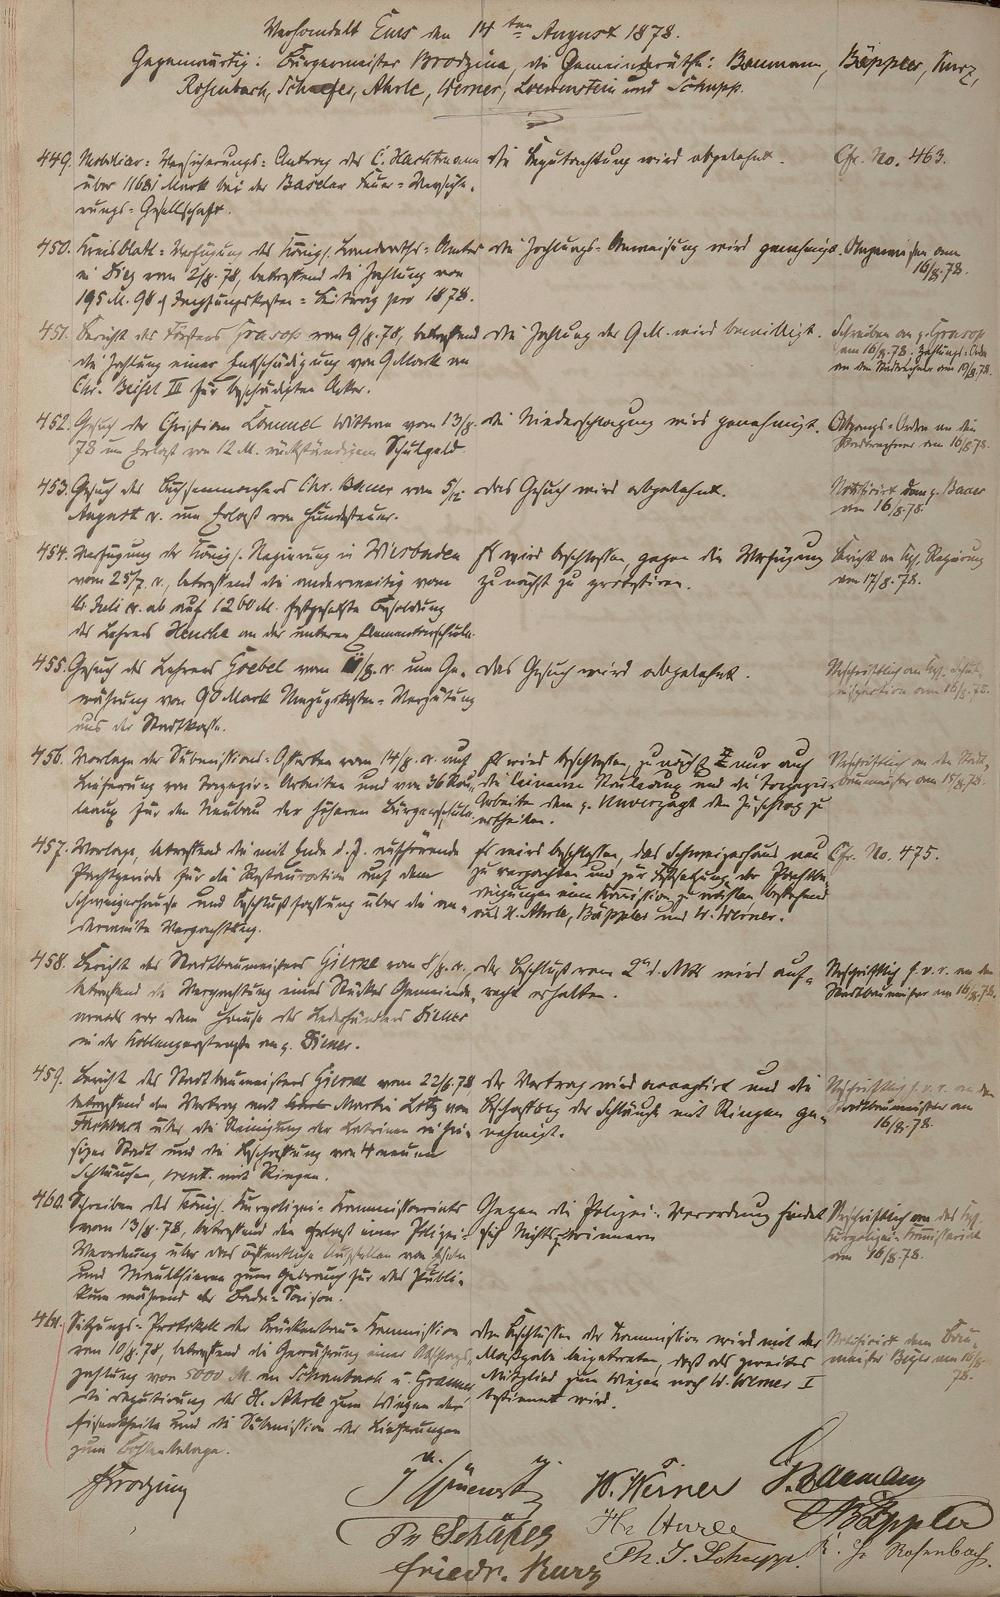 Verhandelt Ems den 14ten August 1878.
Gegenwärtig: Bürgermeister Brodzina, die Gemeinderäthe: Baumann, Bäppler, Kurz,
Rosenbach, Schaefer, Ahrle, Werner, Loewenstein und Schupp.
449. Mobiliar-Versicherungs-Antrag des C. Hacktmann
über 11681 Mark bei der Baseler Feuer-Versiche-
rungs-Gesellschaft.
die Begutachtung wird abgelehnt.
Cfr. No. 463.
450. Kreisblatt-Verfügung des Königl. Landraths-Amtes
in Diez vom 2/8.78, betreffend die Zahlung von
195 M. 98 ₰ Impfungskosten-Beitrag pro 1878.
die Zahlungs-Anweisung wird genehmigt.
Angewiesen am
16/8.78.
451. Bericht des Försters Grasop vom 9/8.78, betreffend
die Zahlung einer Entschädigung von 9 Mark an
Chr. Beisel III für beschädigten Acker.
die Zahlung der 9 M. wird bewilligt.
Schreiben an H. Grasop
am 16/8.78. Zahlungs-Order
an den Stadtrechner am 19/8.78.
452. Gesuch der Christian Lemmel Wittwe vom 13/8.
78 um Erlaß von 12 M. rückständigem Schulgeld.
die Niederschlagung wird genehmigt.
Abgangs-Order an den
Stadtrechner am 16/8.78.
453. Gesuch des Büchsenmachers Chr. Bauer vom 5/
August cr. um Erlaß von Hundesteuer.
das Gesuch wird abgelehnt.
Notifizirt dem H. Bauer
am 16/8.78.
454. Verfügung der Königl. Regierung in Wiesbaden
vom 25/7. cr., betreffend die anderweitig vom
1. Juli cr. ab auf 1260 M. festgesetzte Besoldung
des Lehrers Henche an der unteren Elementarschule.
Es wird beschlossen, gegen die Verfügung
zunächst zu protestiren.
Bericht an Kgl. Regierung
am 17/8.78.
455. Gesuch des Lehrers Goebel vom /8. cr. um Ge-
währung von 90 Mark Umzugskosten-Vergütung
aus der Stadtkasse.
das Gesuch wird abgelehnt.
Urschriftlich an Kgl. Schul-
inspektion am 16/8.78.
456. Vorlage der Submissions-Offerten vom 14/8. cr. auf
Lieferung von Tapezir-Arbeiten und von 36 Rou-
leaux für den Neubau der höheren Bürgerschule.
Es wird beschlossen, zunächst nur auf
die leinene Rouleaux und die Tapezir-
Arbeiten dem H. Unverzagt den Zuschlag zu
ertheilen.
Urschriftlich an den Stadt-
baumeister am 15/8.78.
457. Vorlage, betreffend die mit Ende d. J. aufhörende
Pachtperiode für die Restauration auf dem
Schweizerhause und Beschlußfassung über die an-
derweite Verpachtung.
Es wird beschlossen, das Schweizerhaus neu
zu verpachten und zur Festsetzung der Pachtbe-
dingungen eine Komission zu wählen bestehend
aus H. Ahrle, Bäppler und W. Werner.
Cfr. No. 475.
458. Bericht des Stadtbaumeisters Gierne vom 8/8. cr.,
betreffend die Verpachtung eines Stückes Gemeinde-
wands vor dem Hause des Lederhändlers Diener
in der Koblenzerstraße an H. Diener.
der Beschluß vom 2n d. Mts. wird auf-
recht erhalten.
Urschriftlich f. v. r. an den
Stadtbaumeister am 16/8.78.
459. Bericht des Stadtbaumeisters Gierne vom 22/6.78
betreffend den Vertrag mit Martin Lotz von
Fachbach über die Reinigung der Latrinen in hie-
siger Stadt und die Beschaffung von 4 neuen
Schläuchen, event. mit Ringen.
der Vertrag wird acceptirt und die
Beschaffung der Schläuche mit Ringen ge-
nehmigt.
Urschriftlich f. v. r. an den
Stadtbaumeister am
16/8.78.
460. Schreiben des Königl. Kurpolizei-Kommissariats
vom 13/8.78, betreffend den Erlaß einer Polizei-
Verordnung über das öffentliche Aufstellen von Eseln
und Maulthieren zum Gebrauch für das Publi-
kum während der Bade-Saison.
Gegen die Polizei-Verordnung findet
sich Nichts zu erinnern.
Urschriftlich an das Kgl.
Kurpolizei-Komissariat
am 16/8.78.
461. Sitzungs-Protokoll der Brückenbau-Kommission
vom 10/8.78, betreffend die Gewährung einer Abschlags-
zahlung von 5000 M. an Schaubach u. Graemer
die Deputirung des H. Ahrle zum Wiegen der
Eisentheile und die Submission der Lieferungen
zum Bohlenbelage.
den Beschlüssen der Kommission wird mit der
Maßgabe beigetreten, daß als zweites
Mitglied zum Wiegen noch W. Werner I
bestimmt wird.
Notifizirt dem Bau-
meister am 16/8.
78.
Brodzina
W. Werner
Baumann
Ph Schäfer
Bäppler
Friedr. Kurz
Ph. J. Schupp.
Rosenbach.